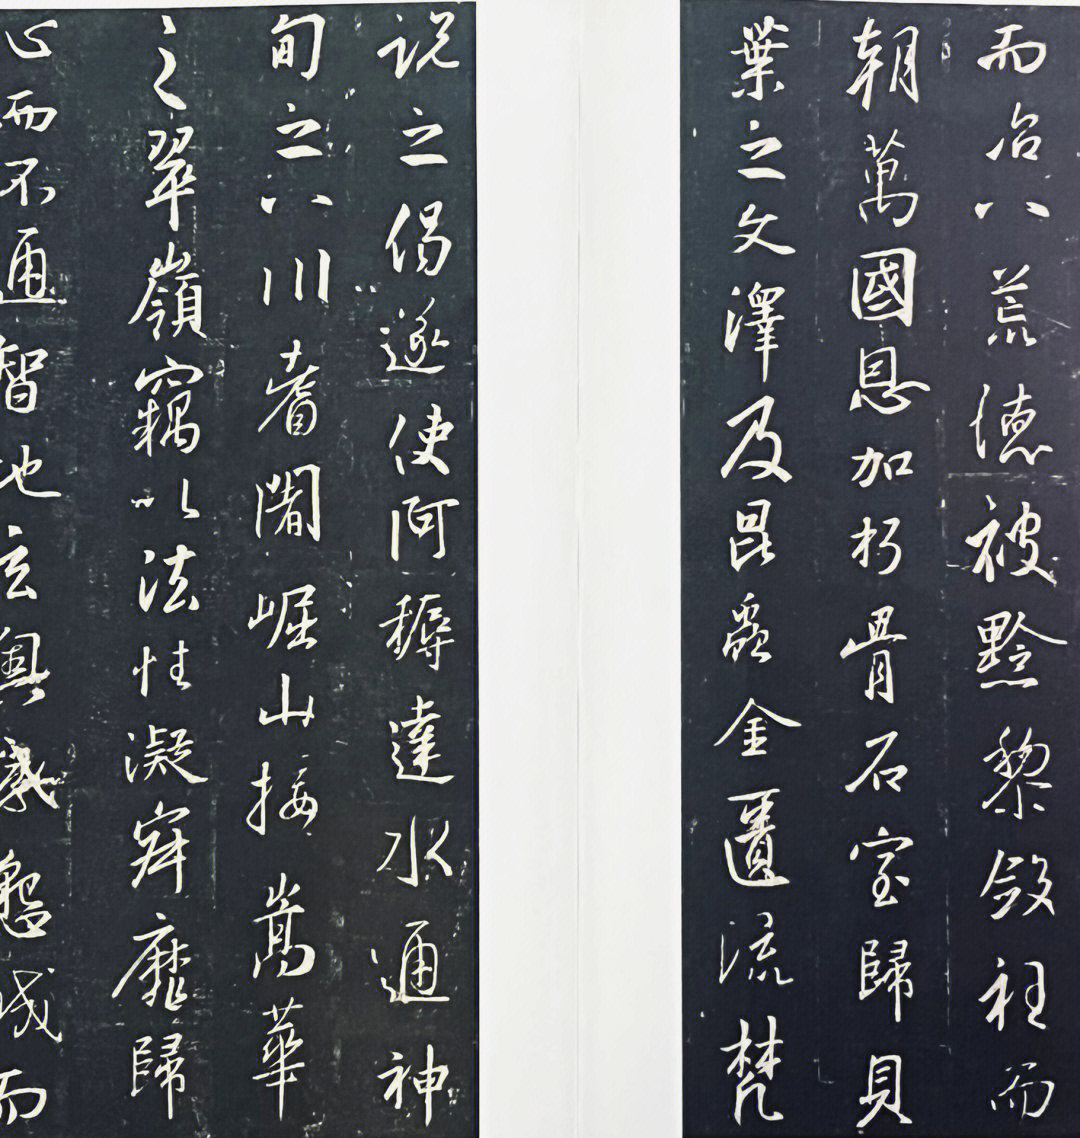 而治八荒德被黔黎斂衽而
朝萬國恩加朽骨石室歸貝
葉之文澤及昆蟲金匱流梵
説之偈遂使阿耨達水通神
甸之八川耆闍崛山接嵩華
之翠嶺竊以法性凝寂靡歸
心而不通智地玄奧感懇誠而